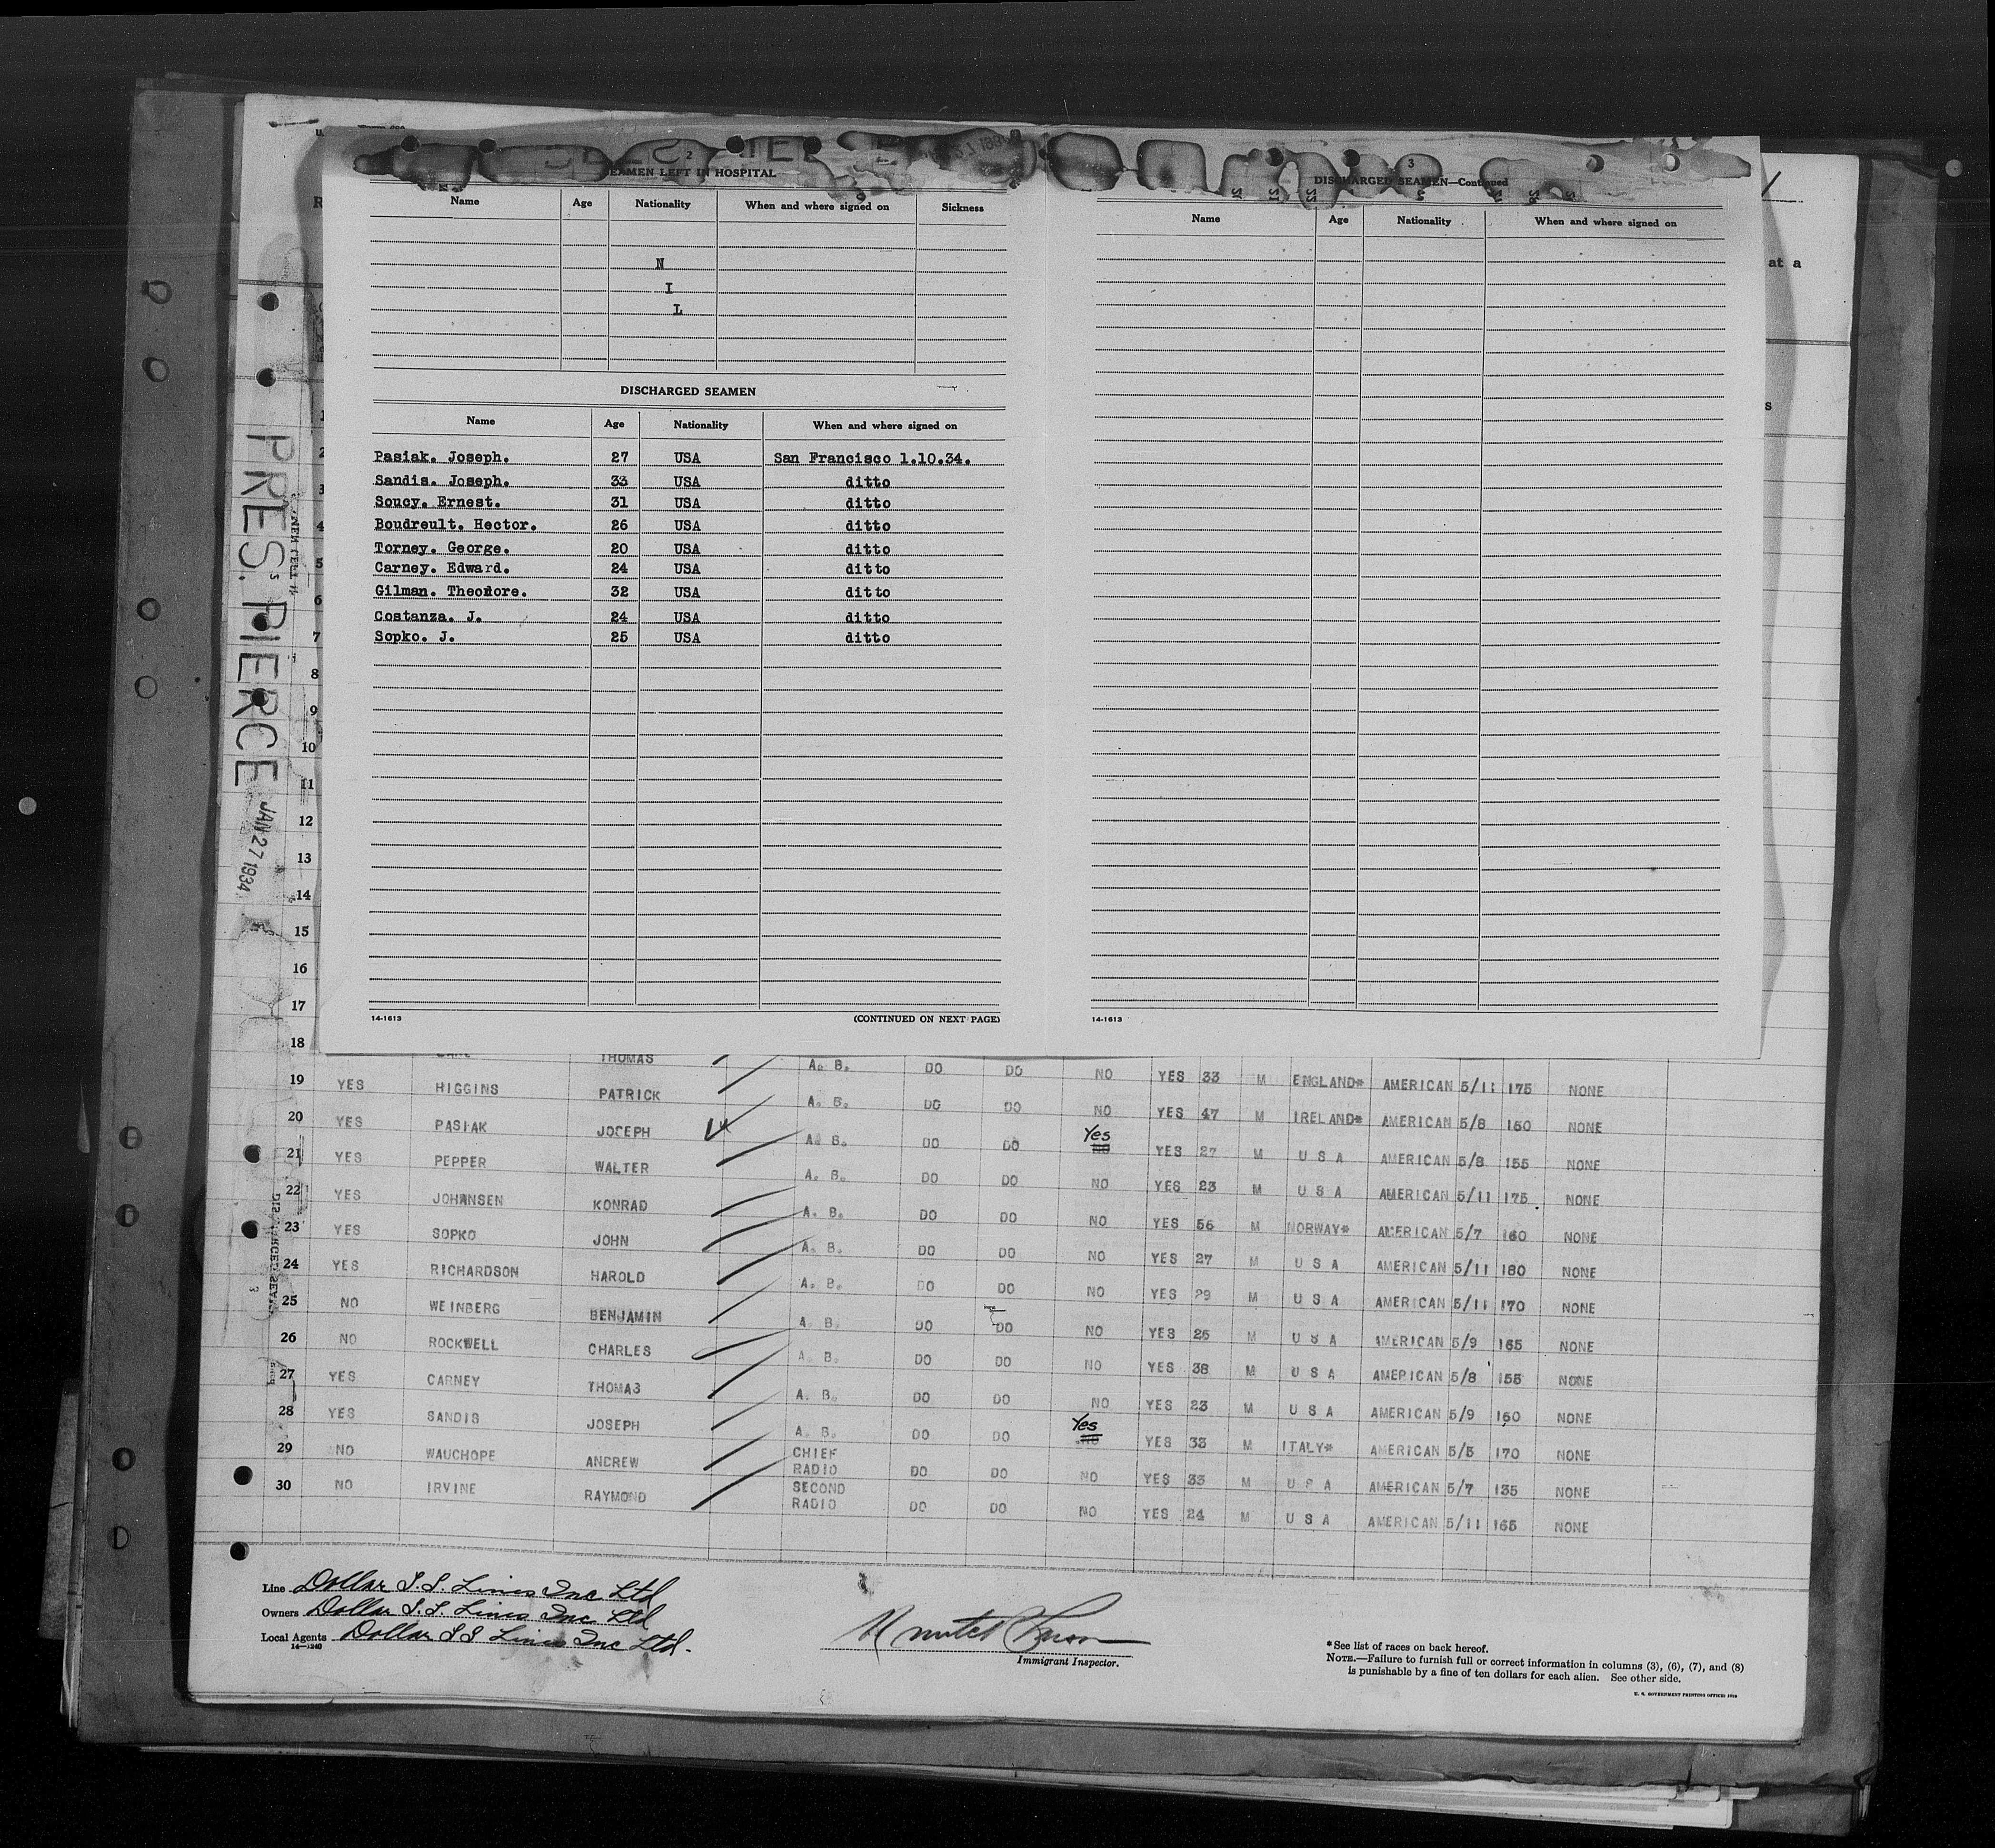 2
SEAMEN LEFT IN HOSPITAL
Name Age Nationality When and where signed on Sickness
N
I
L
DISCHARGED SEAMEN
Name Age Nationality When and where signed on
Pasiak. Joseph. 27 USA San Francisco 1.10.34.
Sandis. Joseph. 33 USA ditto
Soucy. Ernest. 31 USA ditto
Boudreult. Hector. 26 USA ditto
Torney. George. 20 USA ditto
Carney. Edward. 24 USA ditto
Gilman. Theodore. 32 USA ditto
Costanza. J. 24 USA ditto
Sopko. J. 25 USA ditto
14-1613 (CONTINUED ON NEXT PAGE)
3
DISCHARGED SEAMEN—Continued
Name Age Nationality When and where signed on
14-1613
at a
PRES. PIERCE JAN 27 1934
2
3
4
5
6
7
8
9
10
11
12
13
14
15
16
17
18 THOMAS A. B. DO DO NO YES 33 M ENGLAND* AMERICAN 5/11 175 NONE
19 YES HIGGINS PATRICK A. B. DO DO NO YES 47 M IRELAND* AMERICAN 5/8 160 NONE
20 YES PASIAK JOCEPH A. B. DO DO Yes NO YES 27 M U S A AMERICAN 5/8 155 NONE
21 YES PEPPER WALTER A. B. DO DO NO YES 23 M U S A AMERICAN 5/11 175 NONE
22 YES JOHANSEN KONRAD A. B. DO DO NO YES 56 M NORWAY* AMERICAN 5/7 160 NONE
23 YES SOPKO JOHN A. B. DO DO NO YES 27 M U S A AMERICAN 5/11 180 NONE
24 YES RICHARDSON HAROLD A. B. DO DO NO YES 29 M U S A AMERICAN 5/11 170 NONE
25 NO WEINBERG BENJAMIN A. B. DO DO NO YES 25 M U S A AMERICAN 5/9 165 NONE
26 NO ROCKWELL CHARLES A. B. DO DO NO YES 38 M U S A AMERICAN 5/8 155 NONE
27 YES CARNEY THOMAS A. B. DO DO NO YES 23 M U S A AMERICAN 5/9 160 NONE
28 YES SANDIS JOSEPH A. B. DO DO Yes NO YES 33 M ITALY* AMERICAN 5/5 170 NONE
29 NO WAUCHOPE ANDREW CHIEF RADIO DO DO NO YES 33 M U S A AMERICAN 5/7 135 NONE
30 NO IRVINE RAYMOND SECOND RADIO DO DO NO YES 24 M U S A AMERICAN 5/11 165 NONE
Line Dollar S.S. Lines Inc Ltd
Owners Dollar S.S. Lines Inc Ltd
Local Agents Dollar S S Lines Inc Ltd.
14—1240
Immigrant Inspector.
*See list of races on back hereof.
NOTE.—Failure to furnish full or correct information in columns (3), (6), (7), and (8)
is punishable by a fine of ten dollars for each alien. See other side.